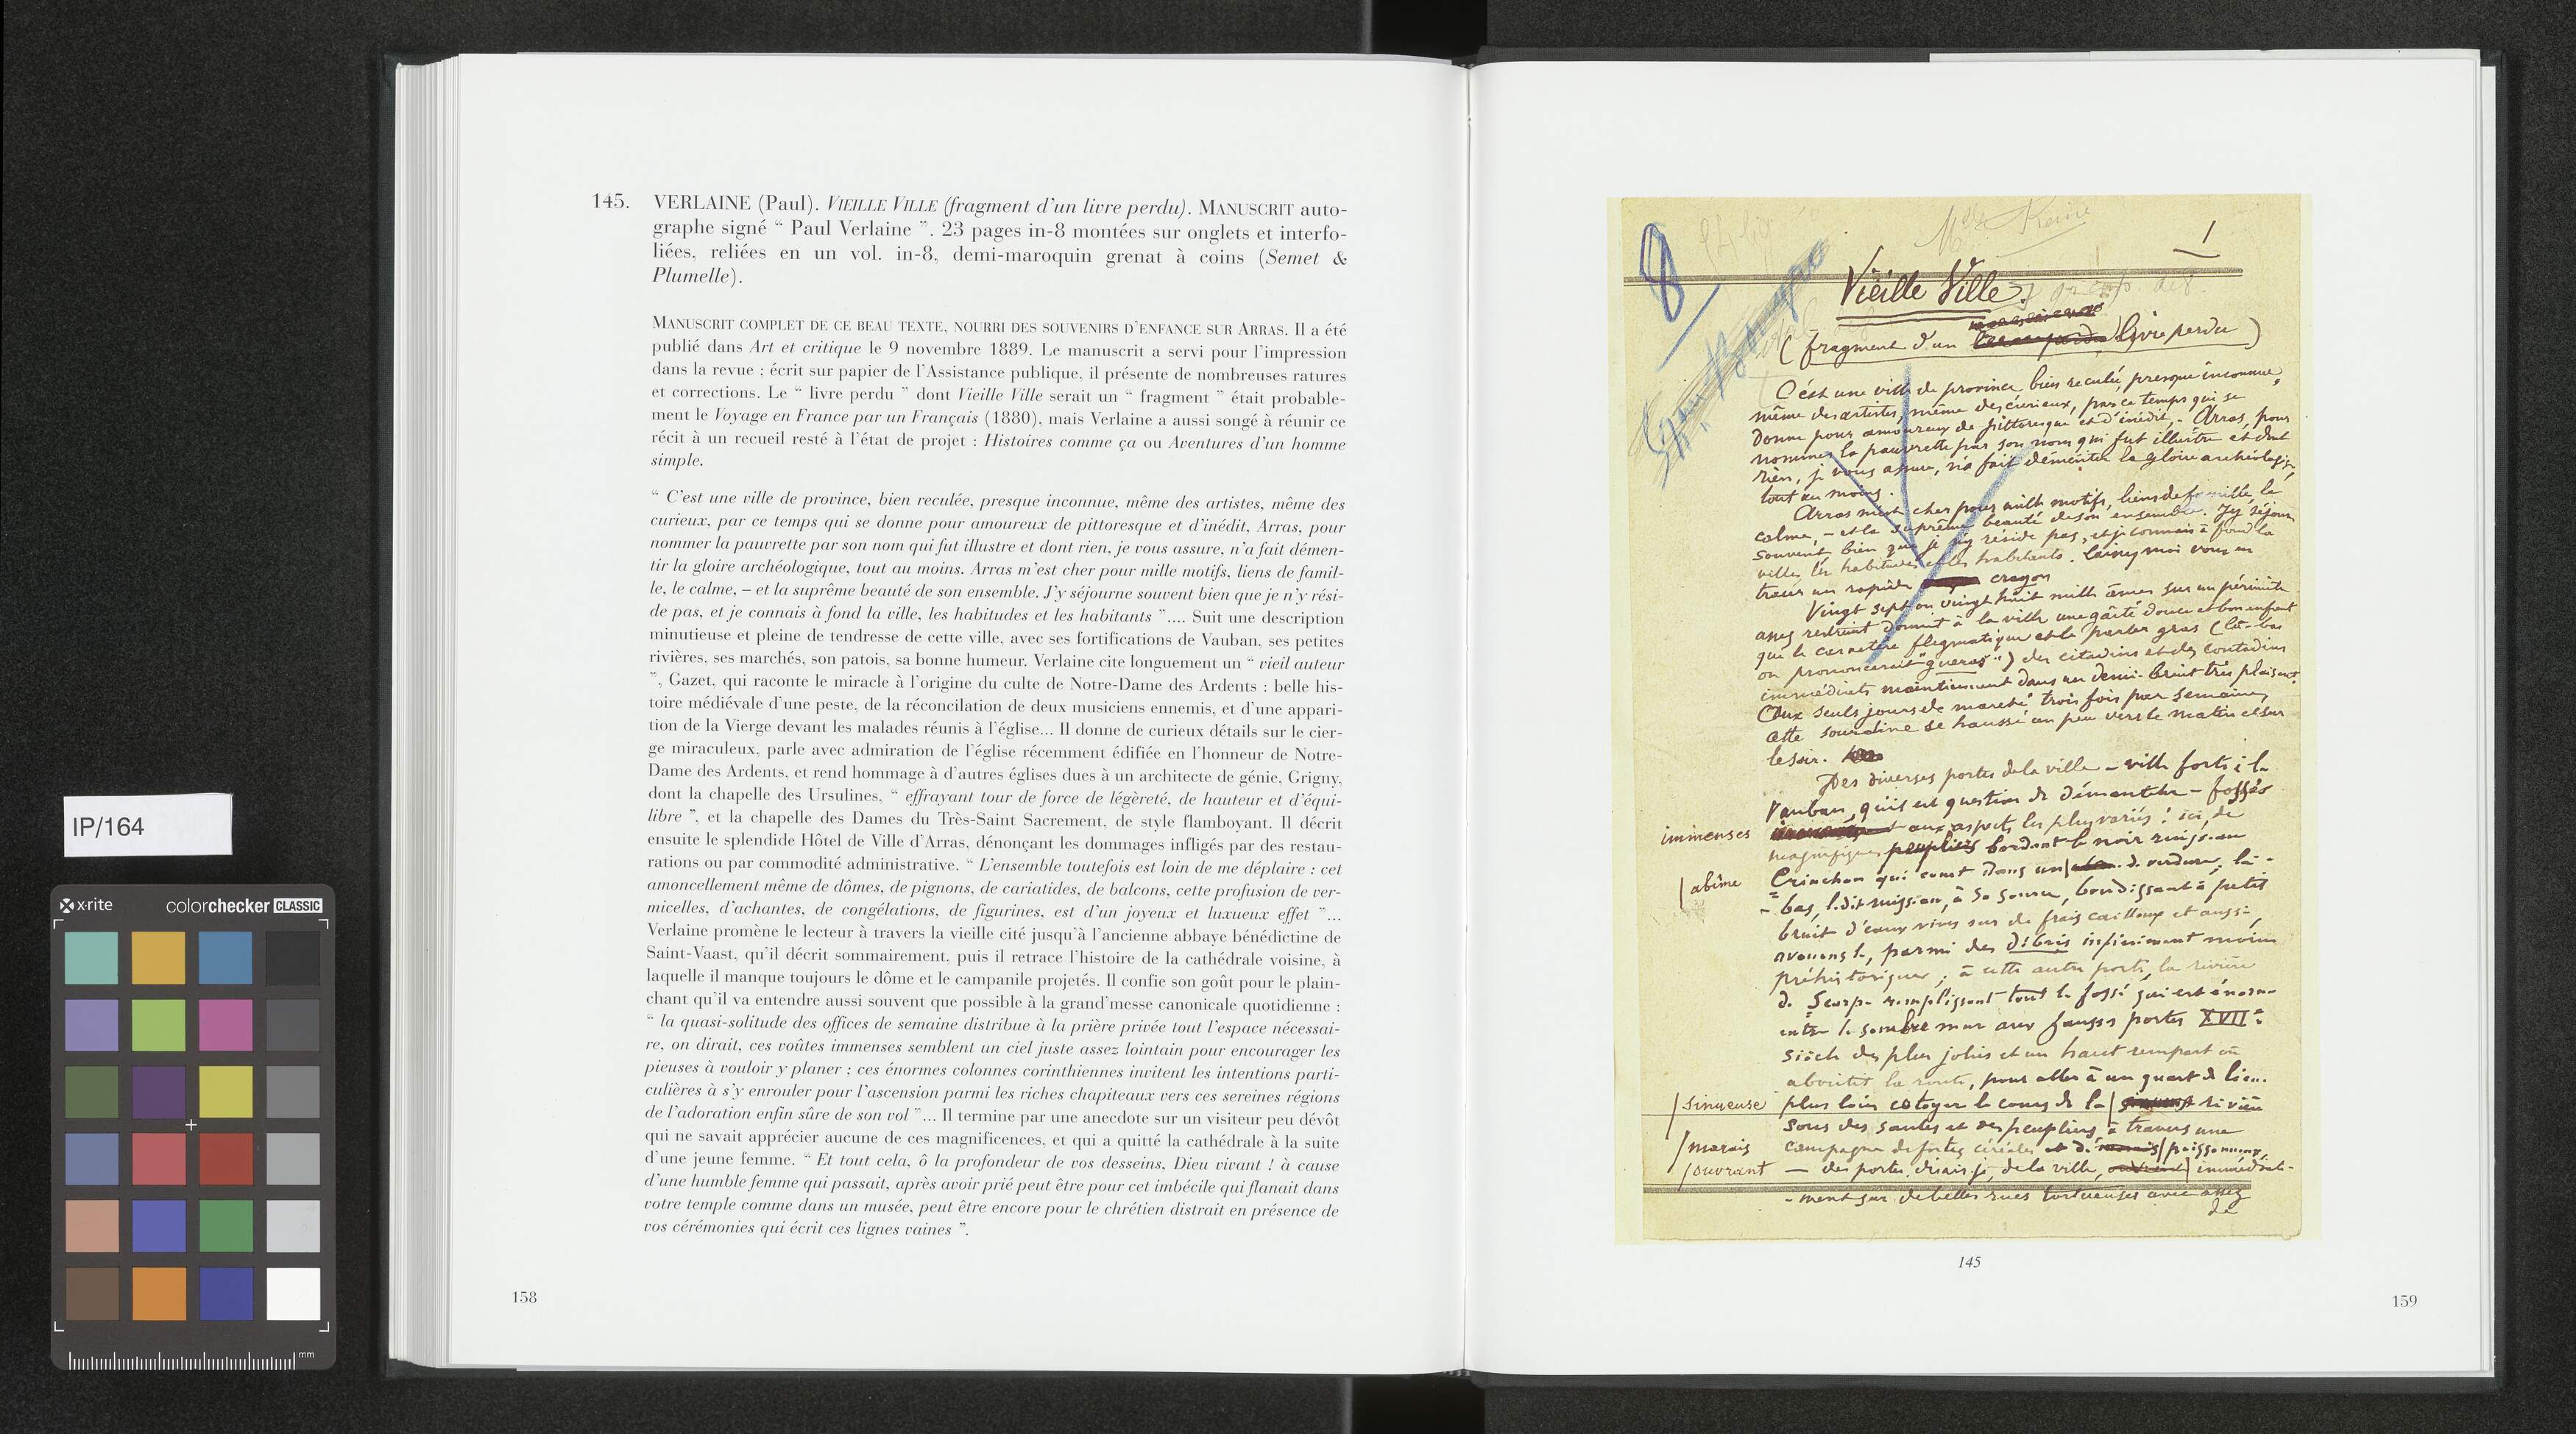 IP/164
x·rite colorchecker CLASSIC
mm
145. VERLAINE (Paul). VIEILLE VILLE (fragment d'un livre perdu). MANUSCRIT auto-
graphe signé “ Paul Verlaine ”. 23 pages in-8 montées sur onglets et interfo-
liées, reliées en un vol. in-8, demi-maroquin grenat à coins (Semet &
Plumelle).
MANUSCRIT COMPLET DE CE BEAU TEXTE, NOURRI DES SOUVENIRS D'ENFANCE SUR ARRAS. Il a été
publié dans Art et critique le 9 novembre 1889. Le manuscrit a servi pour l'impression
dans la revue ; écrit sur papier de l'Assistance publique, il présente de nombreuses ratures
et corrections. Le “ livre perdu ” dont Vieille Ville serait un “ fragment ” était probable-
ment le Voyage en France par un Français (1880), mais Verlaine a aussi songé à réunir ce
récit à un recueil resté à l'état de projet : Histoires comme ça ou Aventures d'un homme
simple.
“ C'est une ville de province, bien reculée, presque inconnue, même des artistes, même des
curieux, par ce temps qui se donne pour amoureux de pittoresque et d'inédit, Arras, pour
nommer la pauvrette par son nom qui fut illustre et dont rien, je vous assure, n'a fait démen-
tir la gloire archéologique, tout au moins. Arras m'est cher pour mille motifs, liens de famil-
le, le calme, – et la suprême beauté de son ensemble. J'y séjourne souvent bien que je n'y rési-
de pas, et je connais à fond la ville, les habitudes et les habitants ”.... Suit une description
minutieuse et pleine de tendresse de cette ville, avec ses fortifications de Vauban, ses petites
rivières, ses marchés, son patois, sa bonne humeur. Verlaine cite longuement un “ vieil auteur
”, Gazet, qui raconte le miracle à l'origine du culte de Notre-Dame des Ardents : belle his-
toire médiévale d'une peste, de la réconcilation de deux musiciens ennemis, et d'une appari-
tion de la Vierge devant les malades réunis à l'église... Il donne de curieux détails sur le cier-
ge miraculeux, parle avec admiration de l'église récemment édifiée en l'honneur de Notre-
Dame des Ardents, et rend hommage à d'autres églises dues à un architecte de génie, Grigny,
dont la chapelle des Ursulines, “ effrayant tour de force de légèreté, de hauteur et d'équi-
libre ”, et la chapelle des Dames du Très-Saint Sacrement, de style flamboyant. Il décrit
ensuite le splendide Hôtel de Ville d'Arras, dénonçant les dommages infligés par des restau-
rations ou par commodité administrative. “ L'ensemble toutefois est loin de me déplaire : cet
amoncellement même de dômes, de pignons, de cariatides, de balcons, cette profusion de ver-
micelles, d'achantes, de congélations, de figurines, est d'un joyeux et luxueux effet ”...
Verlaine promène le lecteur à travers la vieille cité jusqu'à l'ancienne abbaye bénédictine de
Saint-Vaast, qu'il décrit sommairement, puis il retrace l'histoire de la cathédrale voisine, à
laquelle il manque toujours le dôme et le campanile projetés. Il confie son goût pour le plain-
chant qu'il va entendre aussi souvent que possible à la grand'messe canonicale quotidienne :
“ la quasi-solitude des offices de semaine distribue à la prière privée tout l'espace nécessai-
re, on dirait, ces voûtes immenses semblent un ciel juste assez lointain pour encourager les
pieuses à vouloir y planer ; ces énormes colonnes corinthiennes invitent les intentions parti-
culières à s'y enrouler pour l'ascension parmi les riches chapiteaux vers ces sereines régions
de l'adoration enfin sûre de son vol ”... Il termine par une anecdote sur un visiteur peu dévôt
qui ne savait apprécier aucune de ces magnificences, et qui a quitté la cathédrale à la suite
d'une jeune femme. “ Et tout cela, ô la profondeur de vos desseins, Dieu vivant ! à cause
d'une humble femme qui passait, après avoir prié peut être pour cet imbécile qui flanait dans
votre temple comme dans un musée, peut être encore pour le chrétien distrait en présence de
vos cérémonies qui écrit ces lignes vaines ”.
158
8
1
Vieille Ville.
(fragment d'un livre perdu)
C'est une ville de province bien reculée, presque inconnue,
même des artistes, même des curieux, par ce temps qui se
donne pour amoureux de pittoresque et d'inédit, - Arras, pour
nommer la pauvrette par son nom qui fut illustre et dont
rien, je vous assure, n'a fait démentir la gloire archéologique,
tout au moins.
Arras m'est cher pour mille motifs, liens de famille, le
calme, - et la suprême beauté de son ensemble. J'y séjourne
souvent bien que je n'y réside pas, et je connais à fond la
ville, les habitudes et les habitants. Laissez moi vous en
tracer un rapide crayon
Vingt sept ou vingt huit mille âmes sur un périmètre
assez restreint donnent à la ville une gaîté douce et bon enfant
que le caractère flegmatique et le parler gras (là-bas
on prononcerait "gueras") des citadins et des contadins
immédiats maintiennent dans un demi-bruit très plaisant.
(Aux seuls jours de marché trois fois par semaine,
cette sourdine se hausse un peu vers le matin et sur
le soir.
Des diverses portes de la ville - ville forte à la
Vauban, qu'il est question de démanteler - fossés
immenses aux aspects les plus variés : ici, de
magnifiques peupliers bordant le noir ruisseau
/abîme Crinchon qui court dans un de verdure, là-
- bas, ledit ruisseau, à sa source, bondissant à petit
bruit d'eaux vives sur de frais cailloux et aussi,
avouons-le, parmi des débris infiniment moins
préhistoriques ; à cette autre porte, la rivière
de Scarpe remplissant tout le fossé qui est énorme
entre le sombre mur aux fausses portes XVIIe
siècle des plus jolies et un haut rempart où
aboutit la route, pour aller à un quart de lieue
/sinueuse plus loin cotoyer le cours de la rivière
sous des saules et des peupliers à travers une
/marais campagne de fortes céréales et de poissonneux,
/ouvrant — des portes, disais-je, de la ville, immédiate-
- ment sur de belles rues tortueuses avec assez
de
145
159